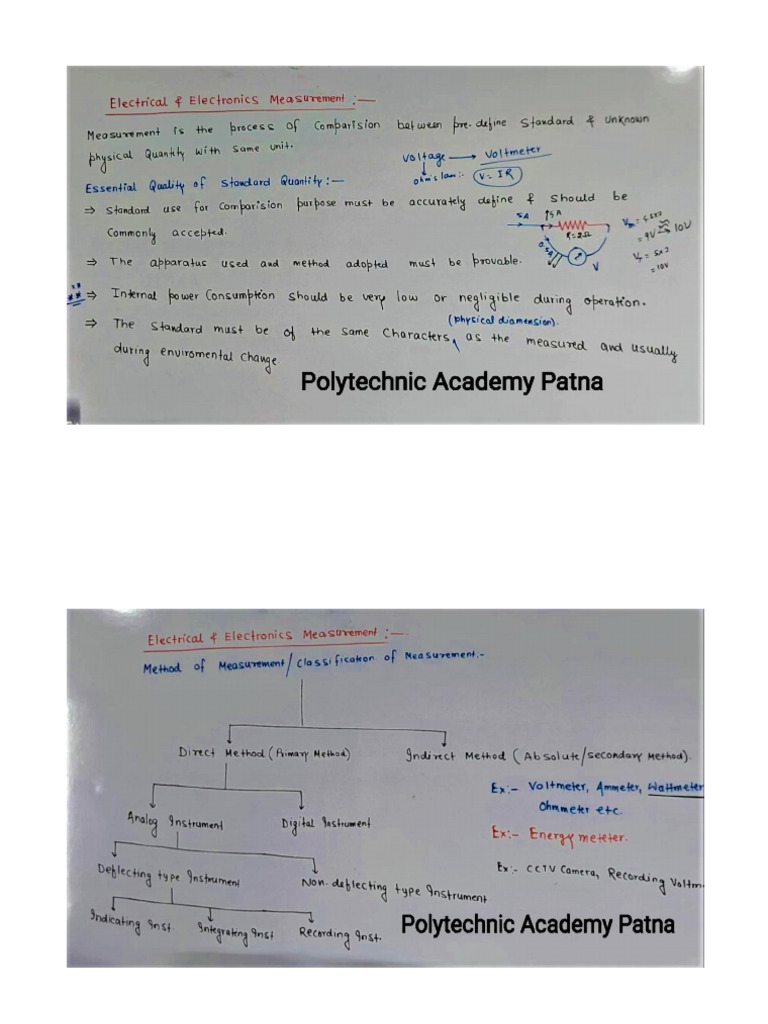 Electrical & Electronics Measurement :-
Measurement is the process of Comparision between pre-define Standard & Unknown
physical Quantity with same unit.
Voltage → Voltmeter
ohm's law:- V = IR
Essential Quality of Standard Quantity:-
⇒ Standard use for Comparision purpose must be accurately define & should be
Commonly accepted.
5A
R=2Ω
0.5A
V
= 9V
10V
= 5x2
= 10V
⇒ The apparatus used and method adopted must be provable.
** ⇒ Internal power Consumption should be very low or negligible during operation.
(physical diamension).
⇒ The Standard must be of the same Characters, as the measured and usually
during enviromental Change.
Polytechnic Academy Patna
Electrical & Electronics Measurement :-
Method of Measurement/Classification of Measurement:-
Direct Method (Primary Method)
Indirect Method (Absolute/secondary Method).
Ex:- Voltmeter, Ammeter, Wattmeter
Ohmmeter etc.
Analog Instrument
Digital Instrument
Ex:- Energy meteter.
Deflecting type Instrument
Non-deflecting type Instrument
Ex:- CCTV Camera, Recording Voltm
Indicating Inst.
Integrateng Inst
Recording Inst.
Polytechnic Academy Patna